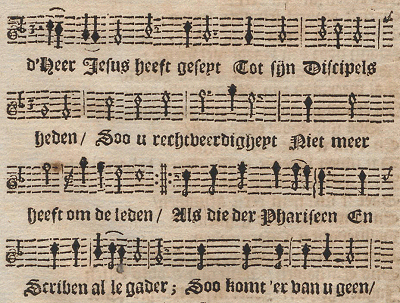 d'Heer Jesus heeft geseyt Tot sijn Discipels
heden/ Soo u rechtveerdigheyt Niet meer
heeft om de leden/ Als die der Phariseen En
Scriben al le gader; Soo komt 'er van u geen/